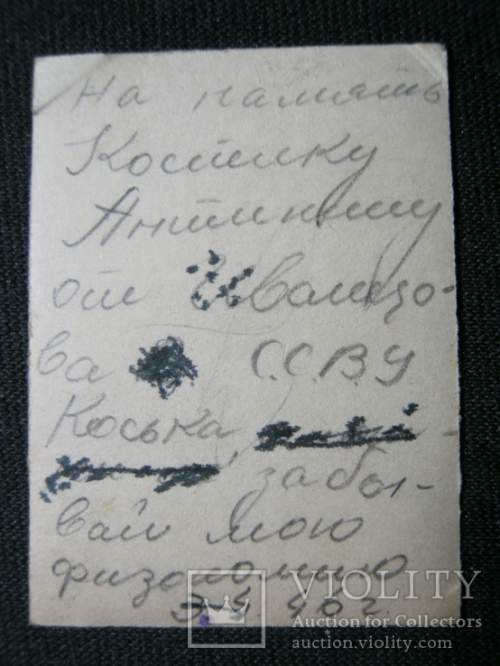 На память
Костику
от Иванцо-
ва С.С.В.У
Коська
забы-
вай мою
физономию
46 г.
VIOLITY
Auction for Collectors
auction.violity.com